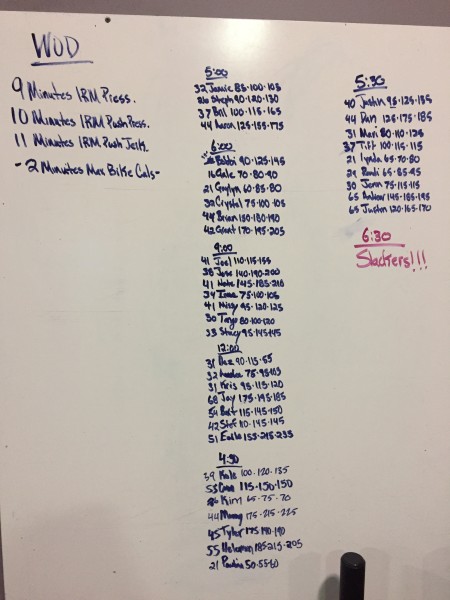 WOD
9 Minutes 1RM Press.
10 Minutes 1RM Push Press.
11 Minutes 1RM Push Jerk.
-2 Minutes Max Bike Cals-
5:00
32 Jamie 85·100·105
26 Steph 90·120·130
37 Bill 100·115·165
44 Aaron 125·155·175
6:00
Bobbi 90·125·145
16 Gale 70·80·90
21 60·85·80
32 Crystal 75·100·105
44 Brian 150·180·190
42 Grant 170·195·205
9:00
41 Joel 110·115·155
38 Jose 140·190·200
41 Nate 145·185·210
34 75·100·105
41 Missy 95·120·125
30 80·100·120
33 Stacy 95·145·145
12:00
31 90·115·55
32 75·95·103
31 Kris 95·115·120
68 Jay 175·195·185
54 115·145·150
42 Stef 110·145·145
51 155·215·235
4:30
39 Kale 100·120·135
55 115·150·150
Kim 65·75·70
44 175·215·225
45 Tyler 175·190·190
55 185·215·205
21 50·55·60
5:30
40 Justin 95·125·135
44 Dan 125·175·185
31 Mari 80·110·125
37 Tift 100·115·115
21 Lynda 65·70·80
29 65·85·95
30 Jenn 75·115·115
65 Andrew 145·185·195
65 Justin 120·165·170
6:30
Slackers!!!